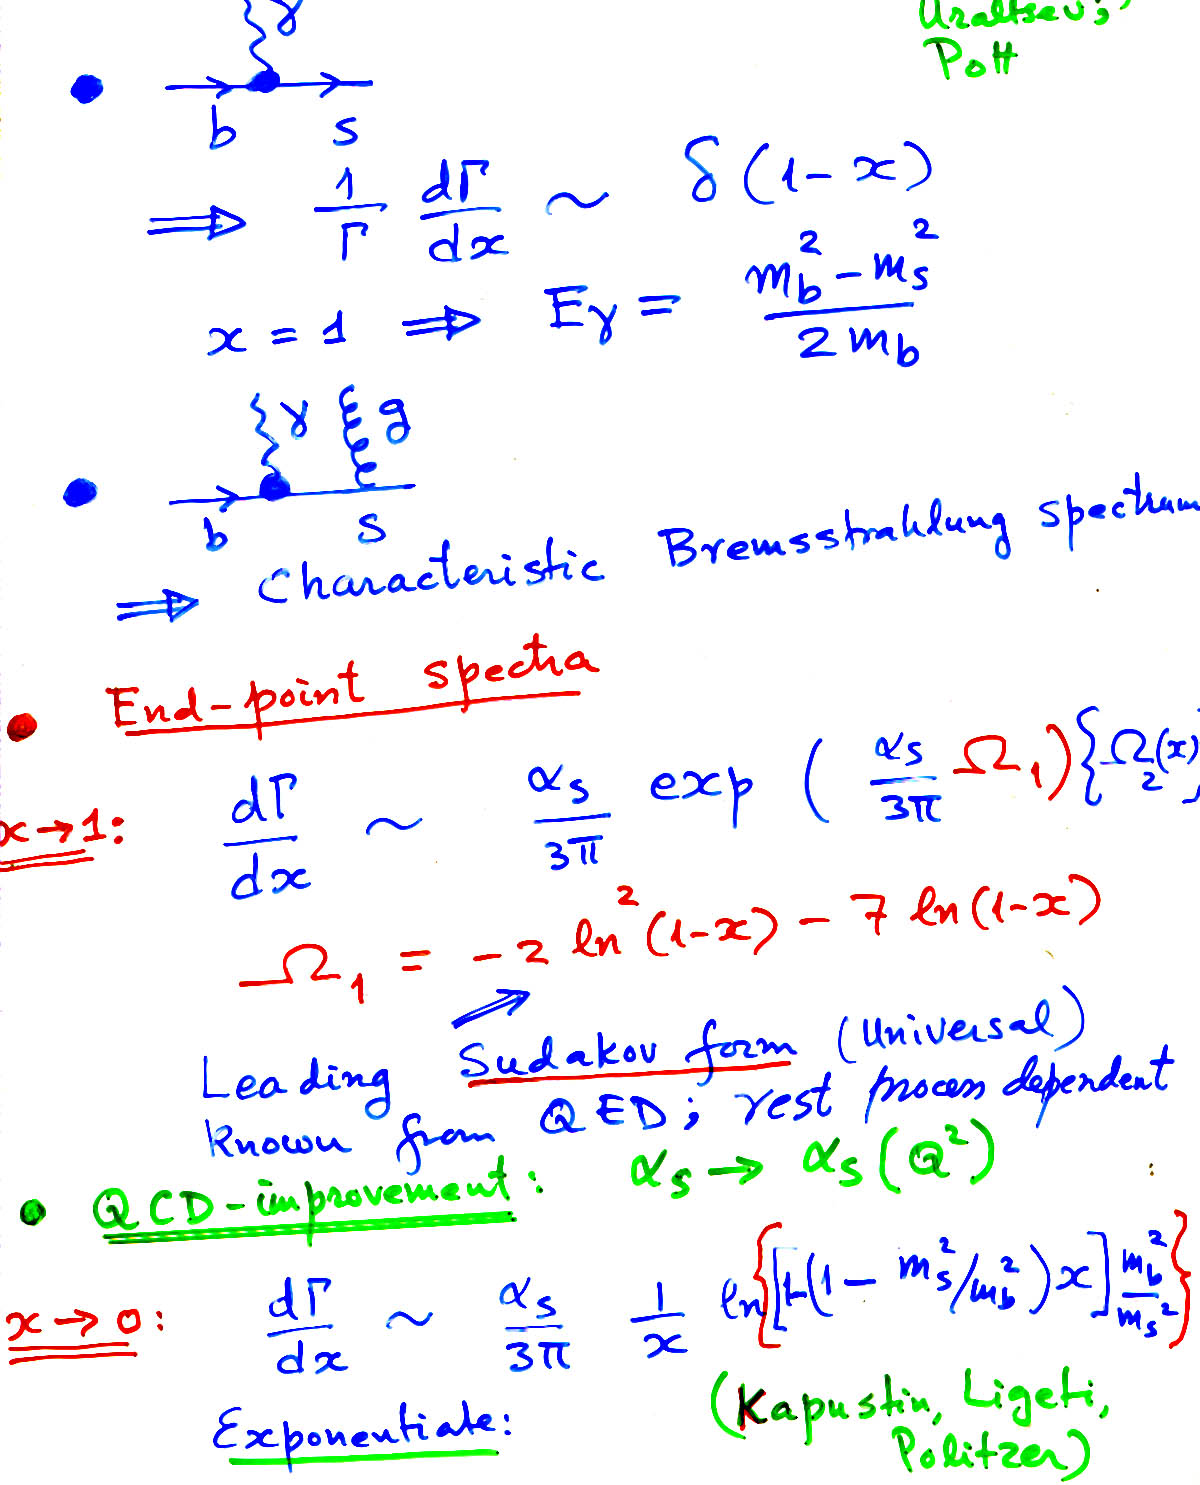 Uraltsev;
γ
Pott
b s
⟹ 1/Γ dΓ/dx ~ δ(1-x)
x = 1 ⟹ Eγ = (m_b² - m_s²)/(2 m_b)
γ g
b s
⟹ Characteristic Bremsstrahlung spectrum
End-point spectra
x→1: dΓ/dx ~ αs/3π exp ( αs/3π Ω₁){Ω₂(x)
Ω₁ = -2 ln²(1-x) - 7 ln(1-x)
Leading Sudakov form (Universal)
known from QED; rest process dependent
QCD-improvement: αs → αs(Q²)
x→0: dΓ/dx ~ αs/3π 1/x ln{[1-(1-m_s²/m_b²)x] m_b²/m_s²}
Exponentiate: (Kapustin, Ligeti,
Politzer)